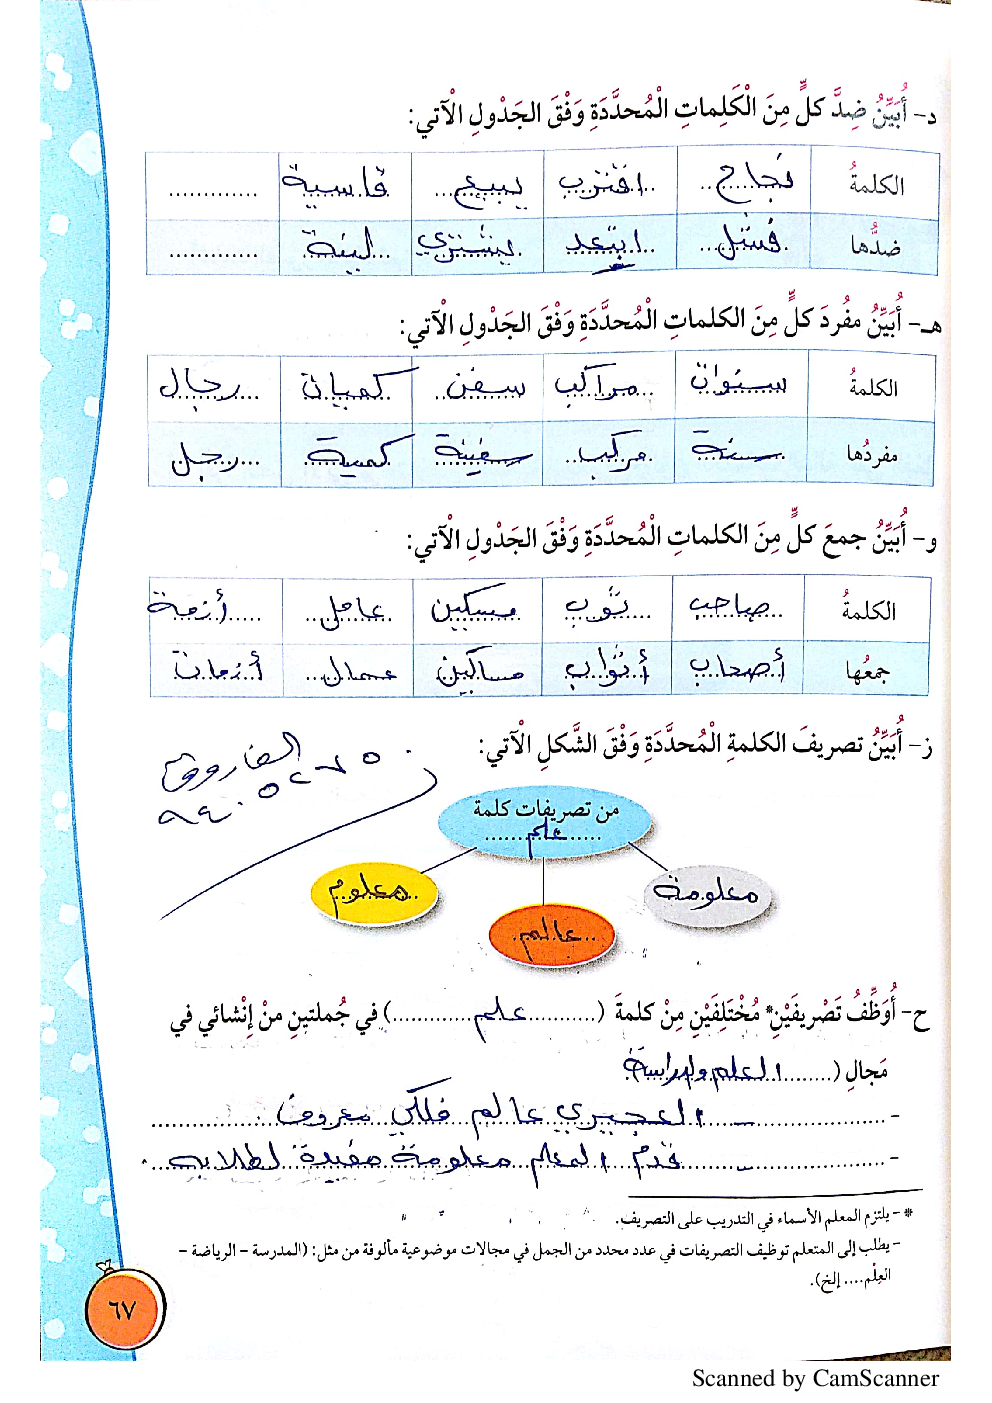 د- أُبَيِّنُ ضِدَّ كلٍّ مِنَ الْكَلِماتِ الْمُحدَّدَةِ وَفْقَ الجَدْولِ الْآتي:
الكلمةُ نجاح اقترب يبيع قاسية
ضدُّها فشل ابتعد يشتري لينة
هـ- أُبَيِّنُ مفُردَ كلٍّ مِنَ الكلماتِ الْمُحدَّدَةِ وَفْقَ الجَدْولِ الْآتي:
الكلمةُ سنوات مراكب سفن كميات رجال
مفردُها سنة مركب سفينة كمية رجل
و- أُبَيِّنُ جمعَ كلٍّ مِنَ الكلماتِ الْمُحدَّدَةِ وَفْقَ الجَدْولِ الْآتي:
الكلمةُ صاحب ثوب مسكين عامل أزمة
جمعُها أصحاب أثواب مساكين عمال أزمات
ز- أُبَيِّنُ تصريفَ الكلمةِ الْمُحدَّدَةِ وَفْقَ الشَّكلِ الْآتي:
الفاروق
من تصريفات كلمة
علم
معلومة
عالم
معلوم
ح- أُوَظِّفُ تَصْريفَيْنِ* مُخْتَلِفَيْنِ مِنْ كلمةَ (علم) في جُملتينِ منْ إنْشائي في
مَجالِ (العلم والدراسة
- العجيري عالم فلكي معروف
- قدم المعلم معلومة مفيدة لطلابه
* - يلتزم المعلم الأسماء في التدريب على التصريف.
- يطلب إلى المتعلم توظيف التصريفات في عدد محدد من الجمل في مجالات موضوعية مألوفة من مثل: (المدرسة - الرياضة -
العِلْم.... إلخ).
٦٧
Scanned by CamScanner